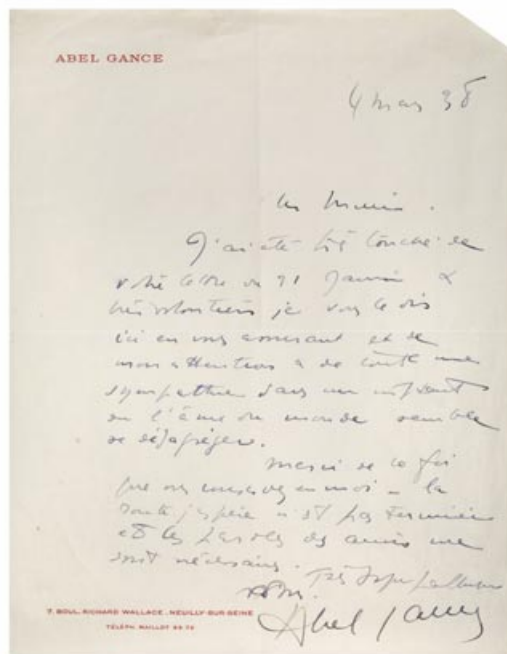 ABEL GANCE
4 mars 38
J'ai été très touché de
votre lettre du 21 Janvier &
très volontiers je vous le dis
ici en vous assurant et de
mon attention & de toute ma
sympathie dans un instant
où l'âme du monde semble
se désagréger.
Merci de la foi
que vous conservez en moi - la
route j'espère n'est pas terminée
et les paroles des amis me
sont nécessaires.
Très sympathiquement
Abel Gance
7. BOUL. RICHARD WALLACE. NEUILLY-SUR-SEINE
TÉLÉPH. MAILLOT